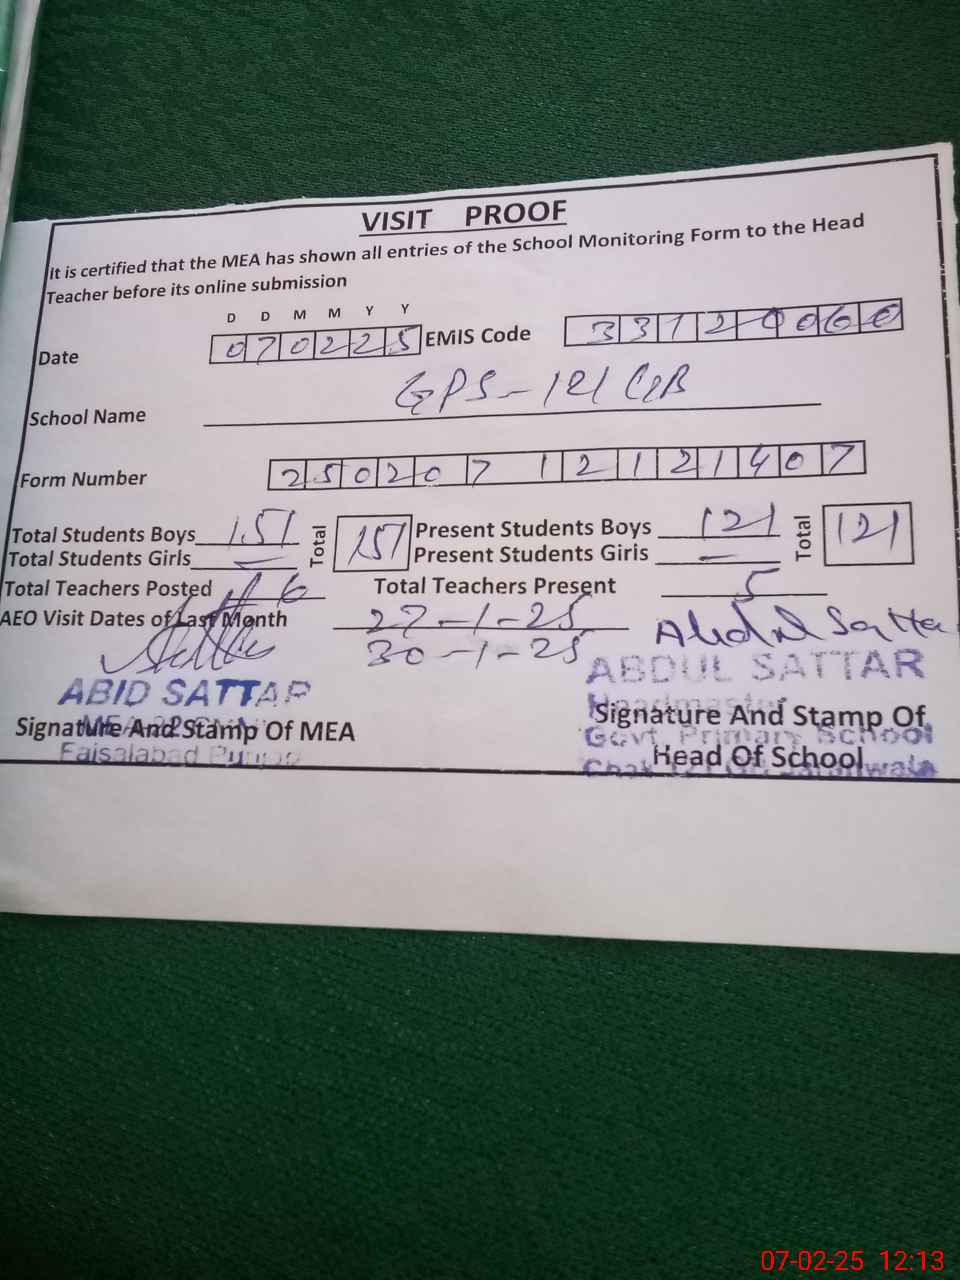 VISIT PROOF
It is certified that the MEA has shown all entries of the School Monitoring Form to the Head
Teacher before its online submission
D D M M Y Y
Date 070225 EMIS Code 33120060
School Name GPS-121 GB
Form Number 25020712121407
Total Students Boys 151 Total 151 Present Students Boys 121 Total 121
Total Students Girls — Present Students Girls —
Total Teachers Posted 6 Total Teachers Present 5
AEO Visit Dates of Last Month 27-1-25
30-1-25
Abdul Sattar
ABID SATTAR
ABDUL SATTAR
Headmaster
Signature And Stamp Of MEA
Signature And Stamp Of
Govt. Primary School
Faisalabad Punjab
Head Of School
Chak 121 GB Jaranwala
07-02-25 12:13